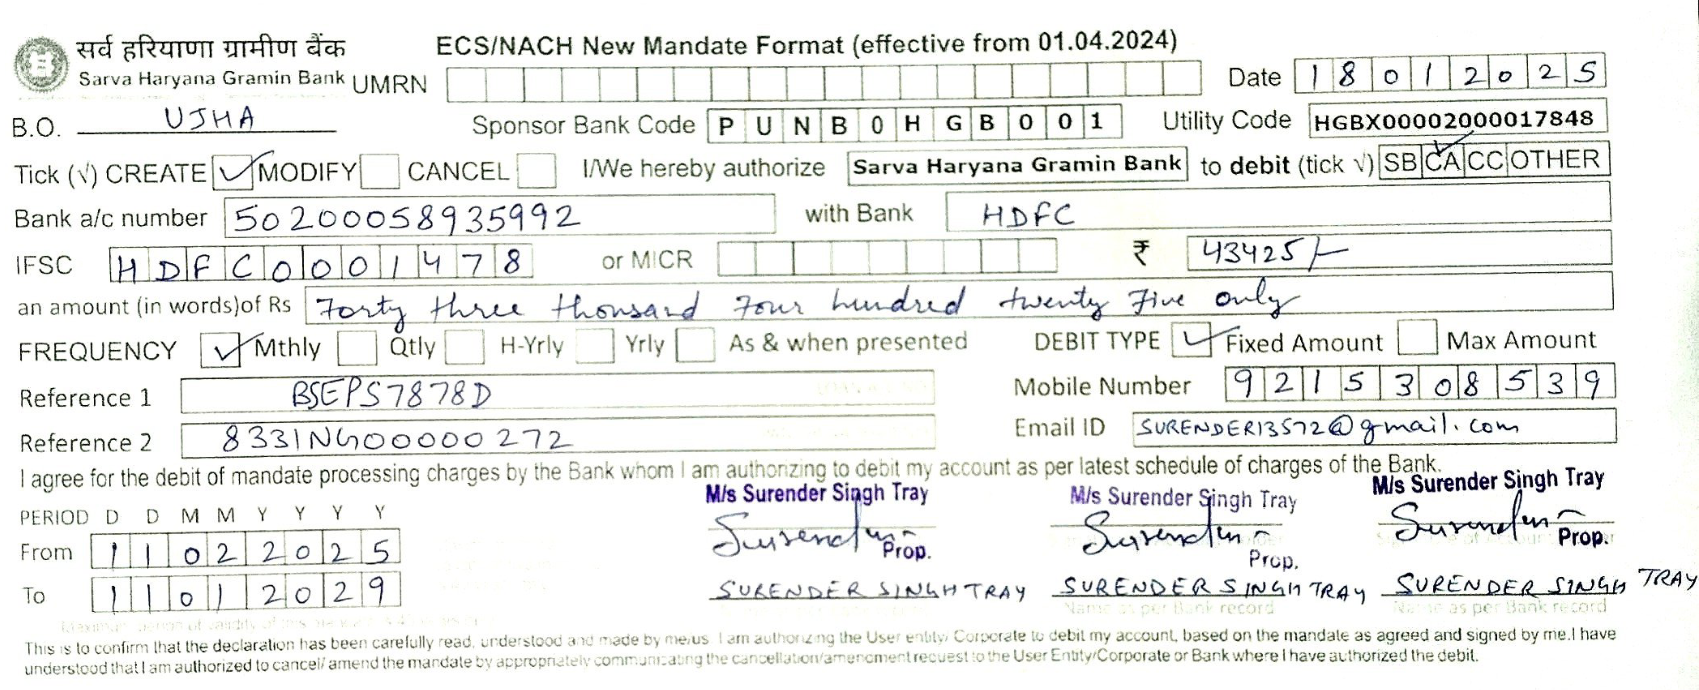 सर्व हरियाणा ग्रामीण बैंक
Sarva Haryana Gramin Bank
ECS/NACH New Mandate Format (effective from 01.04.2024)
UMRN
Date 18012025
B.O. UJHA
Sponsor Bank Code PUNB0HGB001
Utility Code HGBX00002000017848
Tick (√) CREATE ✓ MODIFY CANCEL I/We hereby authorize Sarva Haryana Gramin Bank to debit (tick √) SB CA ✓ CC OTHER
Bank a/c number 50200058935992 with Bank HDFC
IFSC HDFC0001478 or MICR ₹ 43425/-
an amount (in words)of Rs Forty three thousand Four hundred twenty Five only
FREQUENCY ✓ Mthly Qtly H-Yrly Yrly As & when presented DEBIT TYPE ✓ Fixed Amount Max Amount
Reference 1 BSEPS7878D Mobile Number 9215308539
Reference 2 8331NG00000272 Email ID SURENDER13572@gmail.com
I agree for the debit of mandate processing charges by the Bank whom I am authorizing to debit my account as per latest schedule of charges of the Bank.
M/s Surender Singh Tray M/s Surender Singh Tray M/s Surender Singh Tray
PERIOD D D M M Y Y Y Y
From 11022025
Surender Surender Surender
Prop. Prop. Prop.
To 11012029
SURENDER SINGH TRAY SURENDER SINGH TRAY SURENDER SINGH TRAY
Name as per Bank record Name as per Bank record
This is to confirm that the declaration has been carefully read, understood and made by me/us. I am authorizing the User entity/ Corporate to debit my account, based on the mandate as agreed and signed by me.I have
understood that I am authorized to cancel/ amend the mandate by appropriately communicating the cancellation/amendment request to the User Entity/Corporate or Bank where I have authorized the debit.